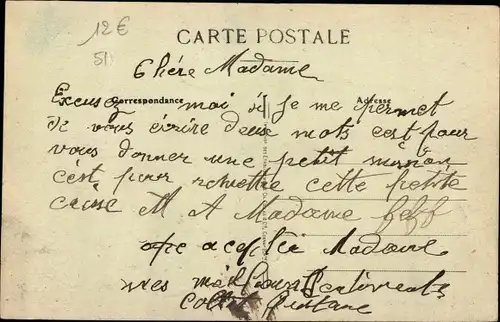 12€
51
CARTE POSTALE
Chére Madame
Correspondance
Adresse
Excusez moi si je me permet
de vous écrire deux mots c'est pour
vous donner une petit mission
c'est pour remettre cette petite
causse M A Madame Jeff
Madame
mes meilleurs